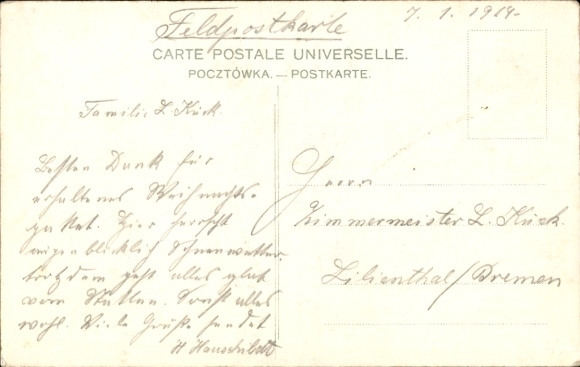 Feldpostkarte
7. 1. 1917.
CARTE POSTALE UNIVERSELLE.
POCZTÓWKA. — POSTKARTE.
Familie L. Kück.
Besten Dank für
erhaltenes Weihnachts-
paket. Hier herrscht
augenblicklich Schneewetter
trotzdem geht alles glatt
vom Statten. Sonst alles
wohl. Viele Grüße sendet
H Hauschildt
Herrn
Zimmermeister L. Kück.
Lilienthal/Bremen